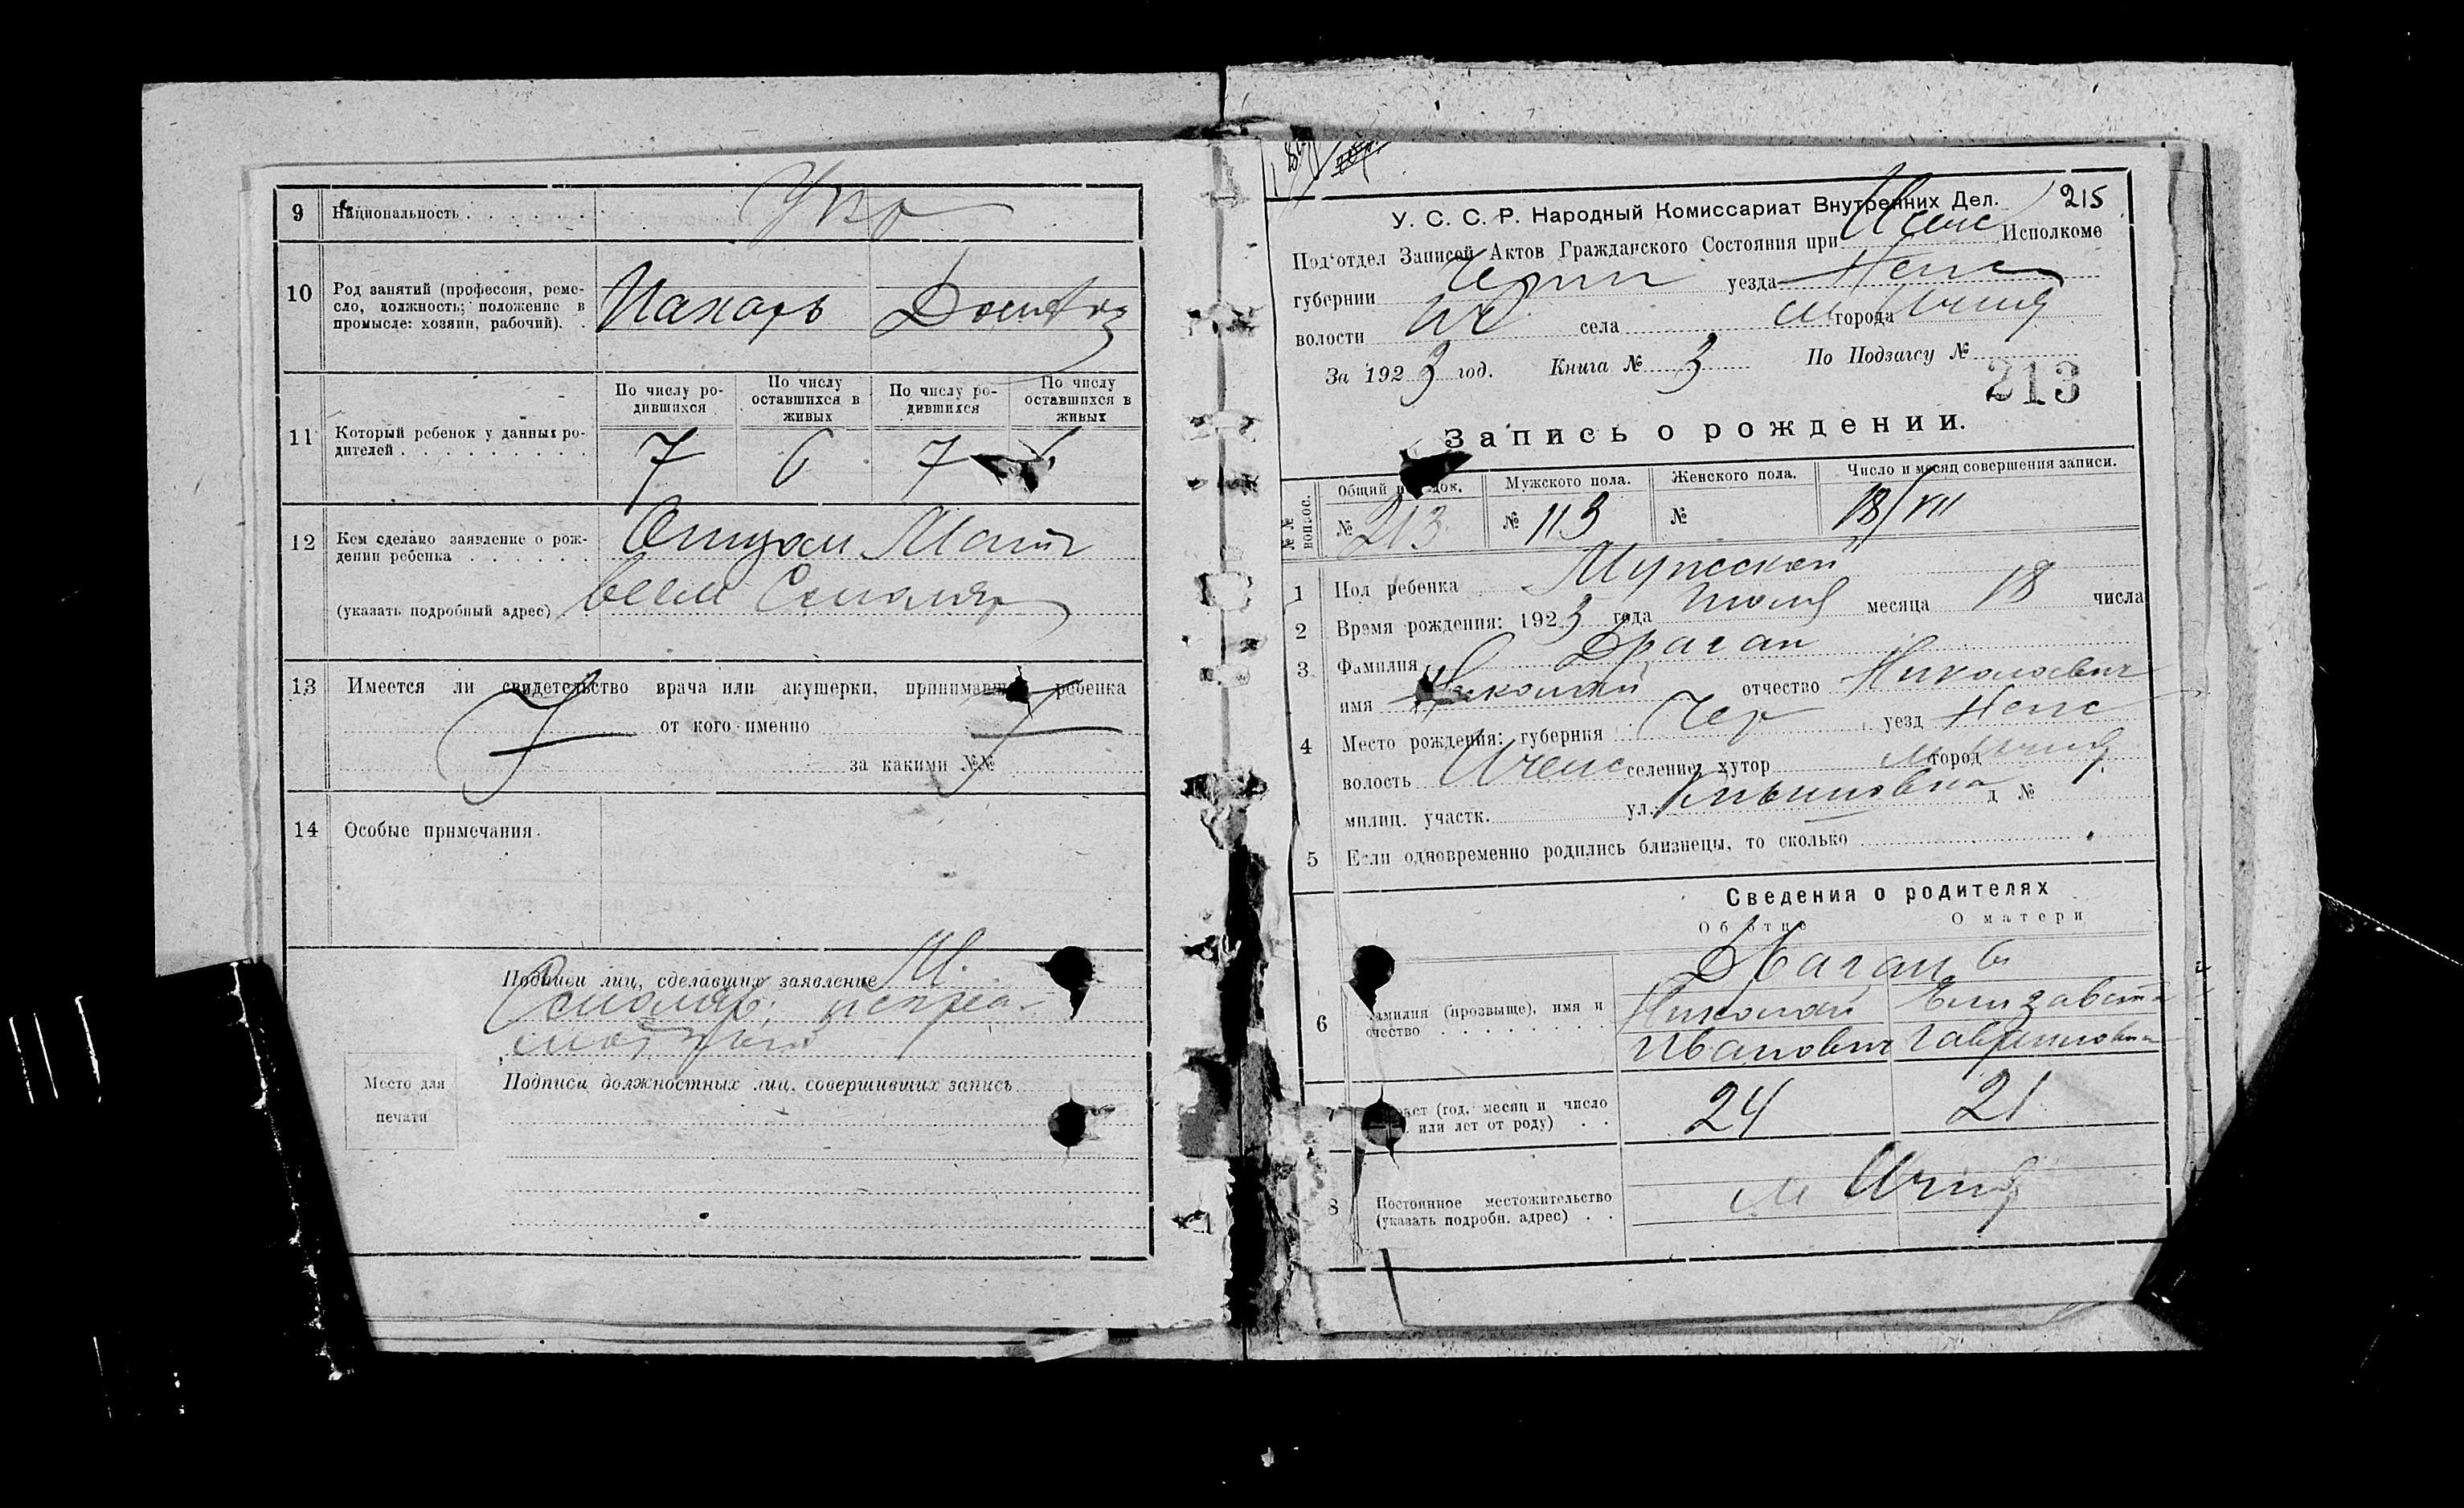 9 Национальность . . . . . . . Укр
10 Род занятий (профессия, реме-
сло, должность; положение в
промысле: хозяин, рабочий). .
Пахарь
11 Который ребенок у данных ро-
дителей . . . . . . . . . .
По числу ро-
дившихся
По числу
оставшихся в
живых
По числу ро-
дившихся
По числу
оставшихся в
живых
7 6 7 6
12 Кем сделано заявление о рож-
дении ребенка . . . . . .
(указать подробный адрес)
Отцом Матт
веем
13 Имеется ли свидетельство врача или акушерки, принимавш ребенка
от кого именно
за какими №№
14 Особые примечания.
Подписи лиц, сделавших заявление М.
Место для
печати
Подписи должностных лиц, совершивших запись
215
У. С. С. Р. Народный Комиссариат Внутренних Дел.
Под'отдел Записей Актов Гражданского Состояния при Ичнс Исполкоме
губернии Черниг уезда Неж
волости села м города Ичня
За 1923 год. Книга № 3 По Подзагсу №
213
Запись о рождении.
№№ вопрос.
Общий п док. Мужского пола. Женского пола. Число и месяц совершения записи.
№ 213 № 113 № 18/VII
1 Пол ребенка Мужской
2 Время рождения: 1923 года Июля месяца 18 числа
3 Фамилия Драган
имя Николай отчество Николаевич
4 Место рождения: губерния Чер уезд Неж
волость Иченс селение, хутор м город Ичня
милиц. участк. ул. д №
5 Если одновременно родились близнецы, то сколько
Сведения о родителях
Об отце О матери
6 амилия (прозвыще), имя и
очество . . . . . . . . .
Драган
Николай Елизавета
Иванович Гавриловна
7 раст (год, месяц и число
или лет от роду) . .
24 21
8 Постоянное местожительство
(указать подробн. адрес) . .
м Ичня